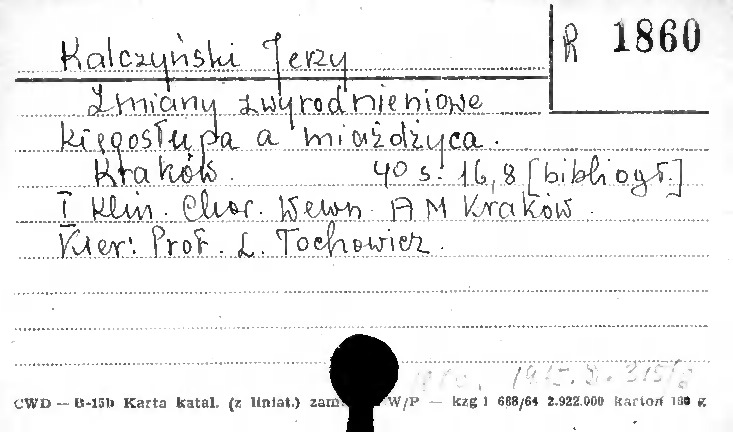 Kalczyński Jerzy
R 1860
Zmiany zwyrodnieniowe
kręgosłupa a miażdżyca.
Kraków. 40 s. 16,8 [bibliogr.]
I Klin. Chor. Wewn. AM Kraków.
Kier: Prof. L. Tochowicz.
CWD — B-15b Karta katal. (z liniat.) zam. W/P — kzg 1 688/64 2.922.000 karton 180 g